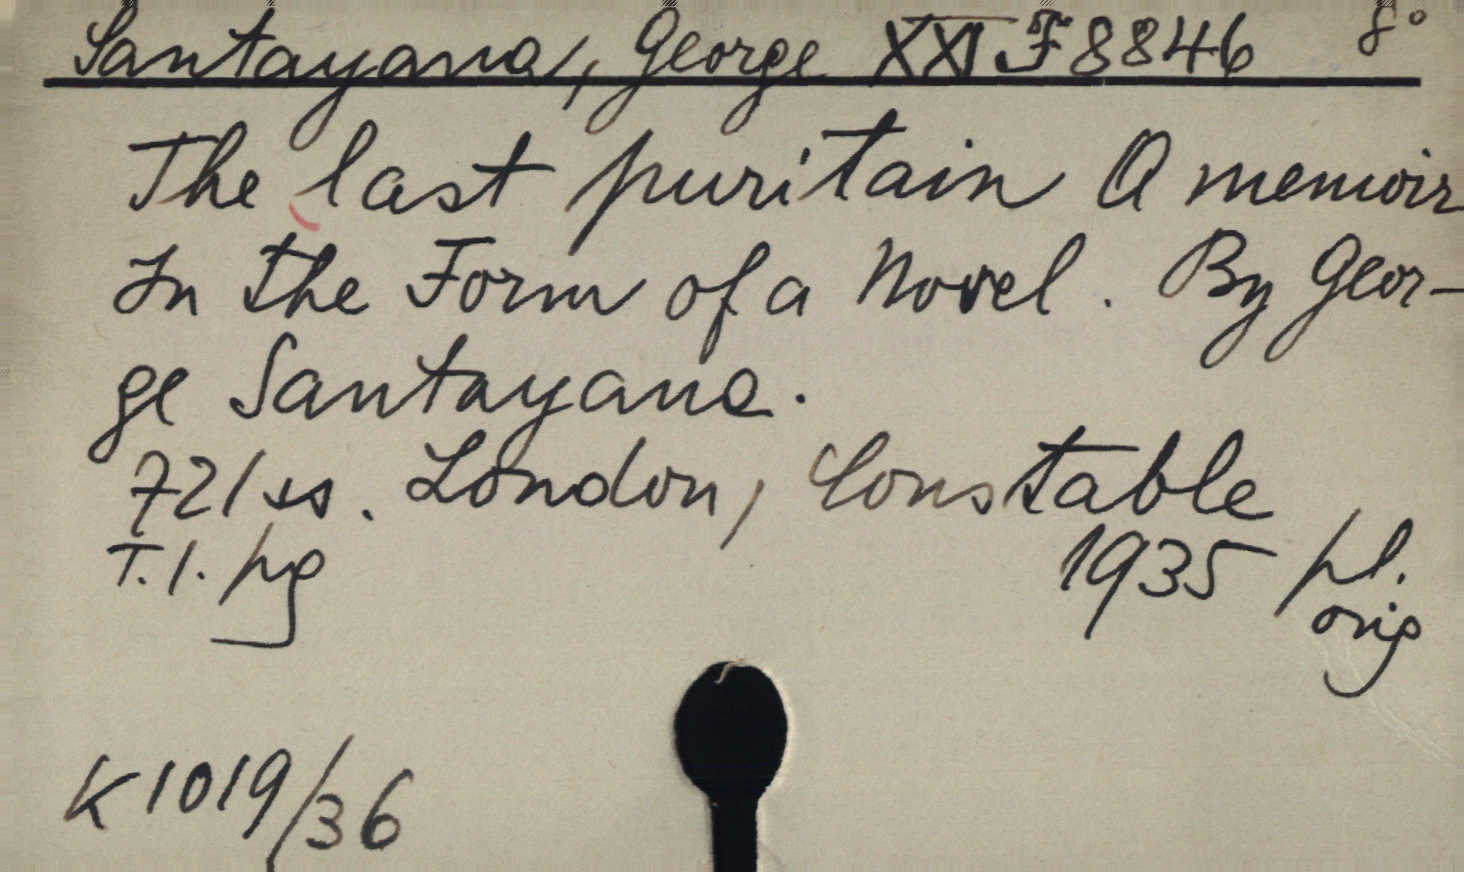 Santayana, George XXI F 8846 8°
The last puritain A memoir
In the Form of a Novel. By Geor-
ge Santayana.
721 ss. London, Constable
T.1. pg 1935 pł.
orig
K 1019/36